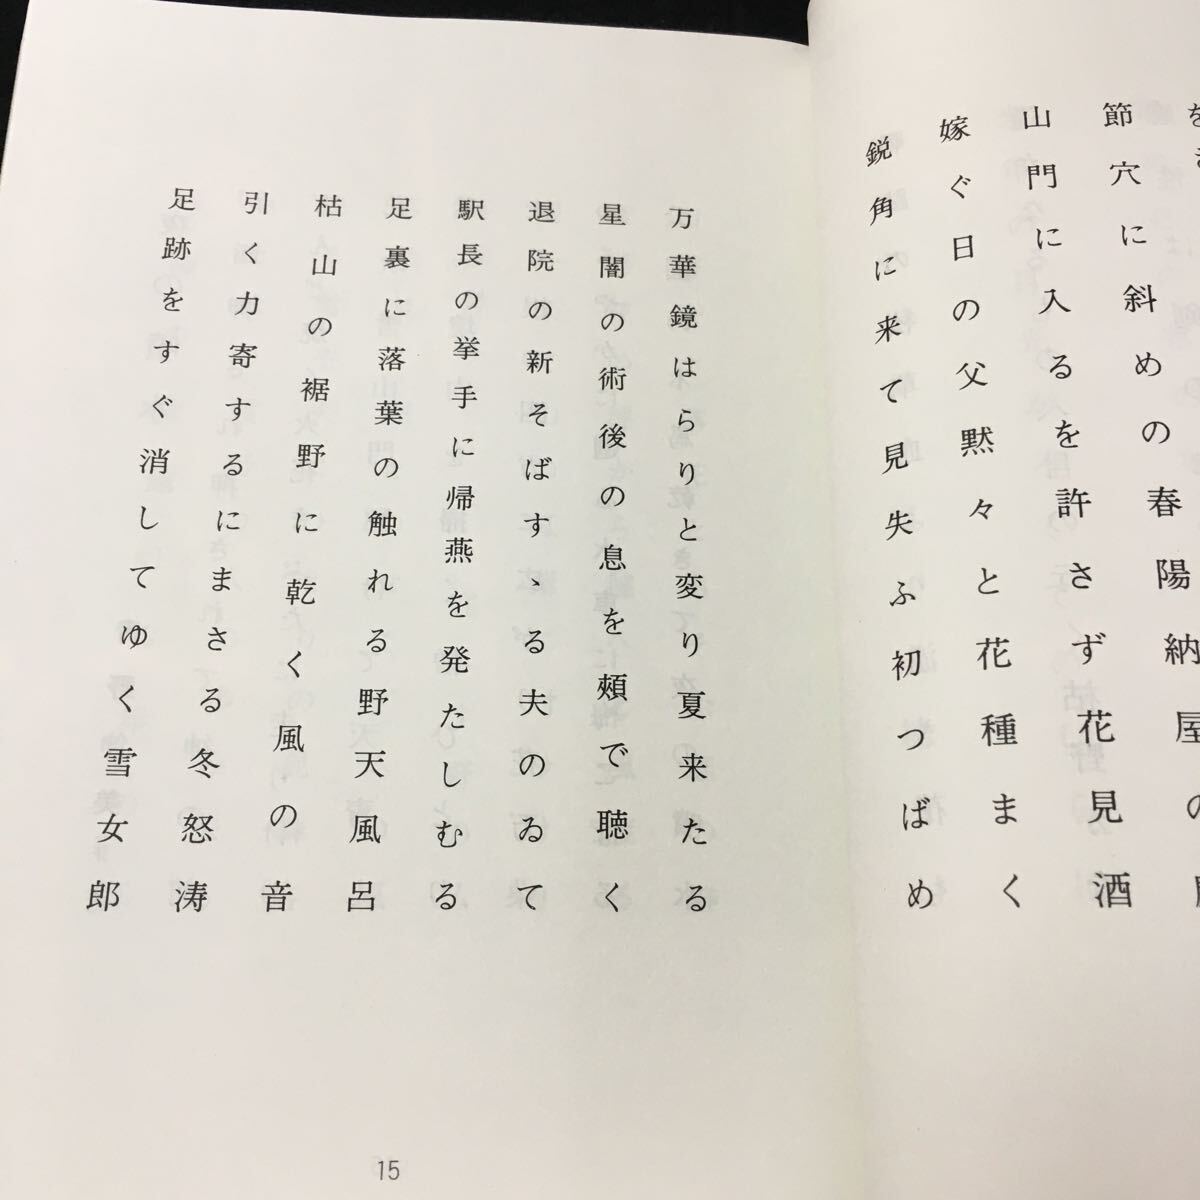 節穴に斜めの春陽納屋の
山門に入るを許さず花見酒
嫁ぐ日の父黙々と花種まく
鋭角に来て見失ふ初つばめ
万華鏡はらりと変り夏来たる
星闇の術後の息を頰で聴く
退院の新そばすゝる夫のゐて
駅長の挙手に帰燕を発たしむる
足裏に落葉の触れる野天風呂
枯山の裾野に乾く風の音
引く力寄するにまさる冬怒涛
足跡をすぐ消してゆく雪女郎
15